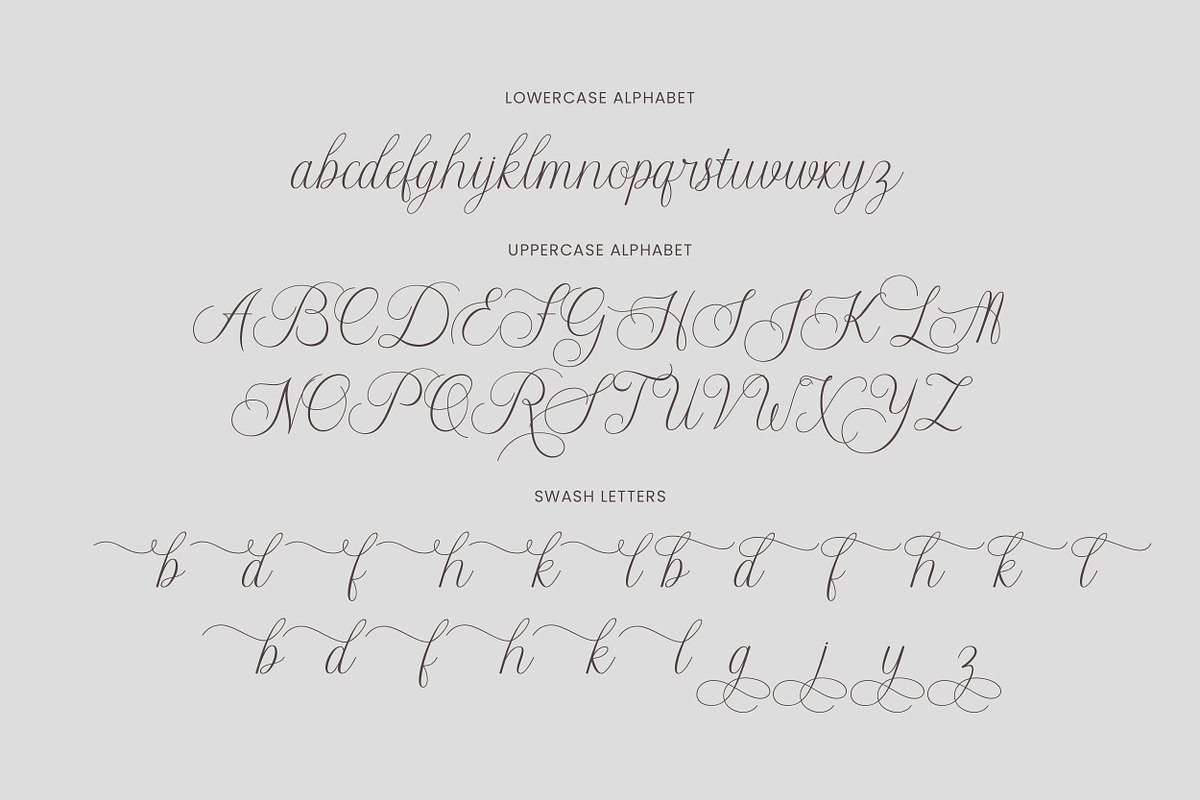 LOWERCASE ALPHABET
abcdefghijklmnopqrstuvwxyz
UPPERCASE ALPHABET
ABCDEFGHIJKLM
NOPQRSTUVWXYZ
SWASH LETTERS
b d f h k l b d f h k l
b d f h k l g j y z